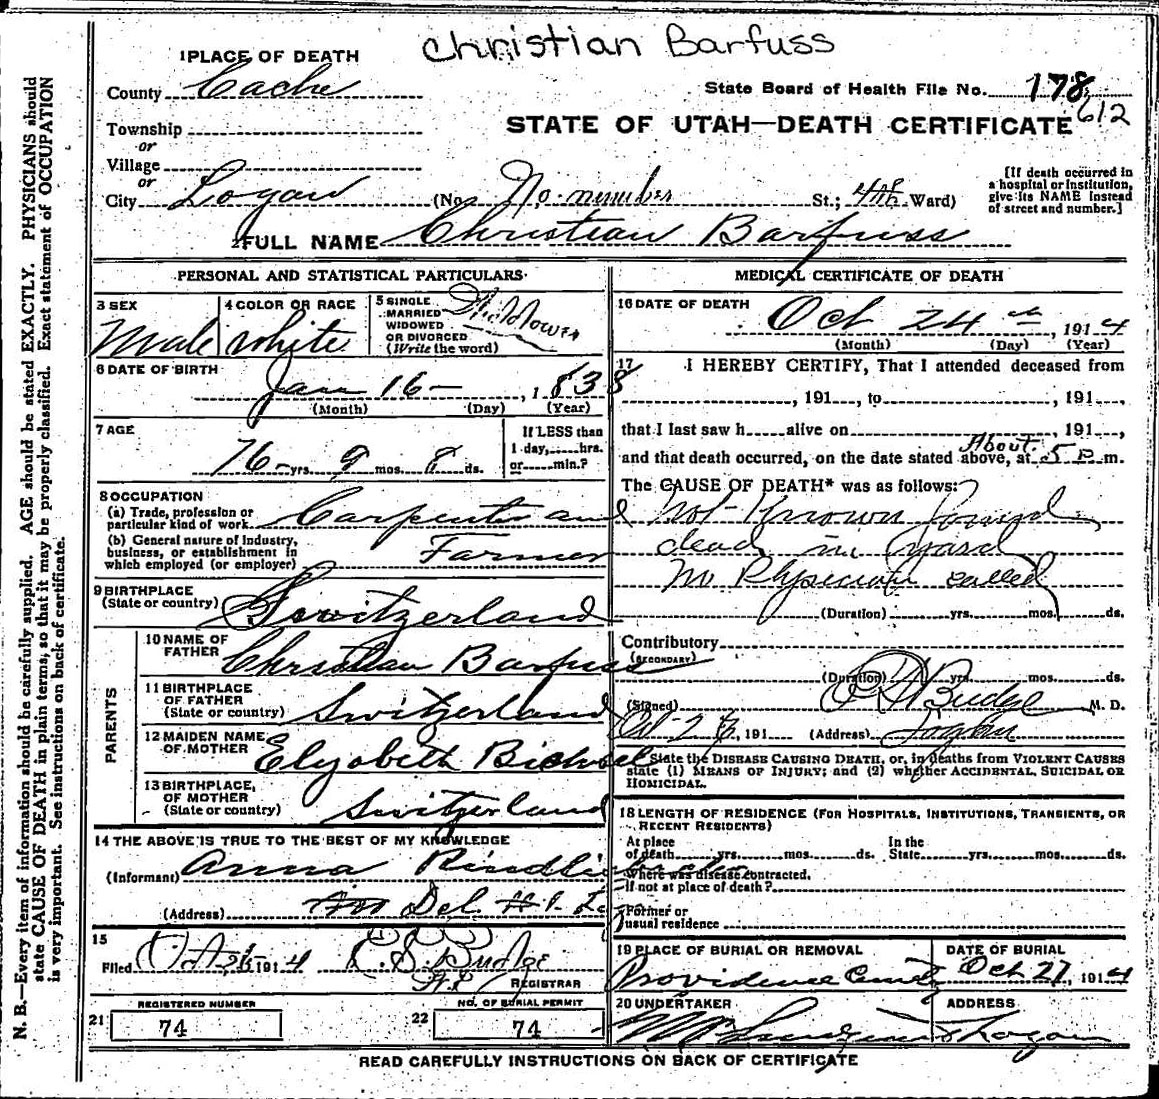 Christian Barfuss
1 PLACE OF DEATH
County Cache
State Board of Health File No. 178
612
STATE OF UTAH—DEATH CERTIFICATE
Township
or
Village
or
City Logan (No. No number St.; 4th Ward)
[If death occurred in a hospital or institution, give its NAME instead of street and number.]
2 FULL NAME Christian Barfuss
PERSONAL AND STATISTICAL PARTICULARS
3 SEX
Male
4 COLOR OR RACE
white
5 SINGLE
MARRIED
WIDOWED
OR DIVORCED
(Write the word)
Widower
6 DATE OF BIRTH
Jan 16 — , 1838
(Month) (Day) (Year)
7 AGE
76 yrs. 9 mos. 8 ds.
If LESS than
1 day, hrs.
or min.?
8 OCCUPATION
(a) Trade, profession or
particular kind of work Carpenter and
(b) General nature of industry,
business, or establishment in
which employed (or employer) Farmer
9 BIRTHPLACE
(State or country) Switzerland
PARENTS
10 NAME OF
FATHER Christian Barfuss
11 BIRTHPLACE
OF FATHER
(State or country) Switzerland
12 MAIDEN NAME
OF MOTHER Elizabeth
13 BIRTHPLACE
OF MOTHER
(State or country) Switzerland
14 THE ABOVE IS TRUE TO THE BEST OF MY KNOWLEDGE
(Informant) Anna
(Address) Del. #1
15
Filed Oct 26 1914 Budge
REGISTRAR
REGISTERED NUMBER
21 74
NO. OF BURIAL PERMIT
22 74
MEDICAL CERTIFICATE OF DEATH
16 DATE OF DEATH
Oct 24 th , 1914
(Month) (Day) (Year)
17 I HEREBY CERTIFY, That I attended deceased from
, 191 , to , 191 ,
that I last saw h alive on , 191 ,
and that death occurred, on the date stated above, at About 5 P m.
The CAUSE OF DEATH* was as follows:
Not Known found
dead in yard
No Physician called
(Duration) yrs. mos. ds.
Contributory
(SECONDARY)
(Duration) yrs. mos. ds.
(Signed) Budge M. D.
Oct , 191 (Address) Logan
State the DISEASE CAUSING DEATH, or, in deaths from VIOLENT CAUSES
state (1) MEANS OF INJURY; and (2) whether ACCIDENTAL, SUICIDAL OR
HOMICIDAL.
18 LENGTH OF RESIDENCE (FOR HOSPITALS, INSTITUTIONS, TRANSIENTS, OR
RECENT RESIDENTS)
At place
of death yrs. mos. ds.
In the
State yrs. mos. ds.
Where was disease contracted,
if not at place of death?
Former or
usual residence
19 PLACE OF BURIAL OR REMOVAL
Providence
DATE OF BURIAL
Oct 27, 1914
20 UNDERTAKER
ADDRESS
Logan
READ CAREFULLY INSTRUCTIONS ON BACK OF CERTIFICATE
N. B.—Every item of information should be carefully supplied. AGE should be stated EXACTLY. PHYSICIANS should
state CAUSE OF DEATH in plain terms, so that it may be properly classified. Exact statement of OCCUPATION
is very important. See instructions on back of certificate.